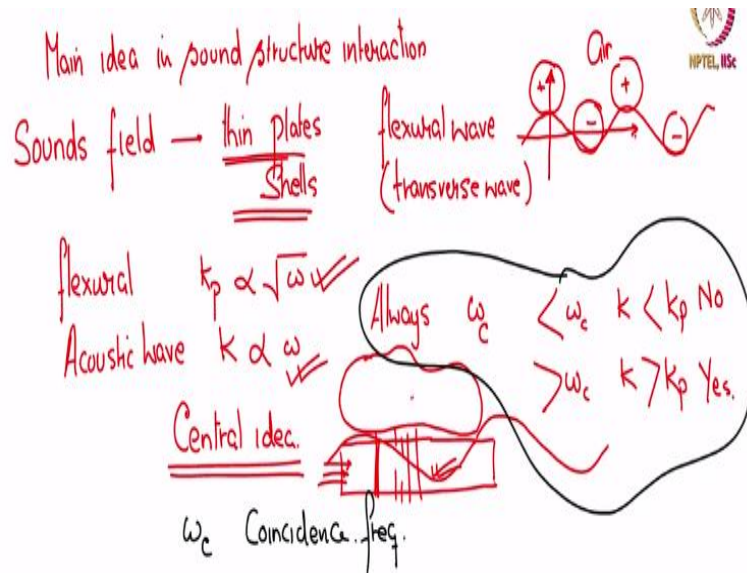 Main idea in sound structure interaction
air
NPTEL, IISc
Sounds field → thin plates
Shells
flexural wave
(transverse wave)
+ - + -
flexural kp ∝ √ω
Acoustic wave k ∝ ω
Always ωc < ωc k < kp No
> ωc k > kp Yes.
Central idea.
ωc Coincidence freq.